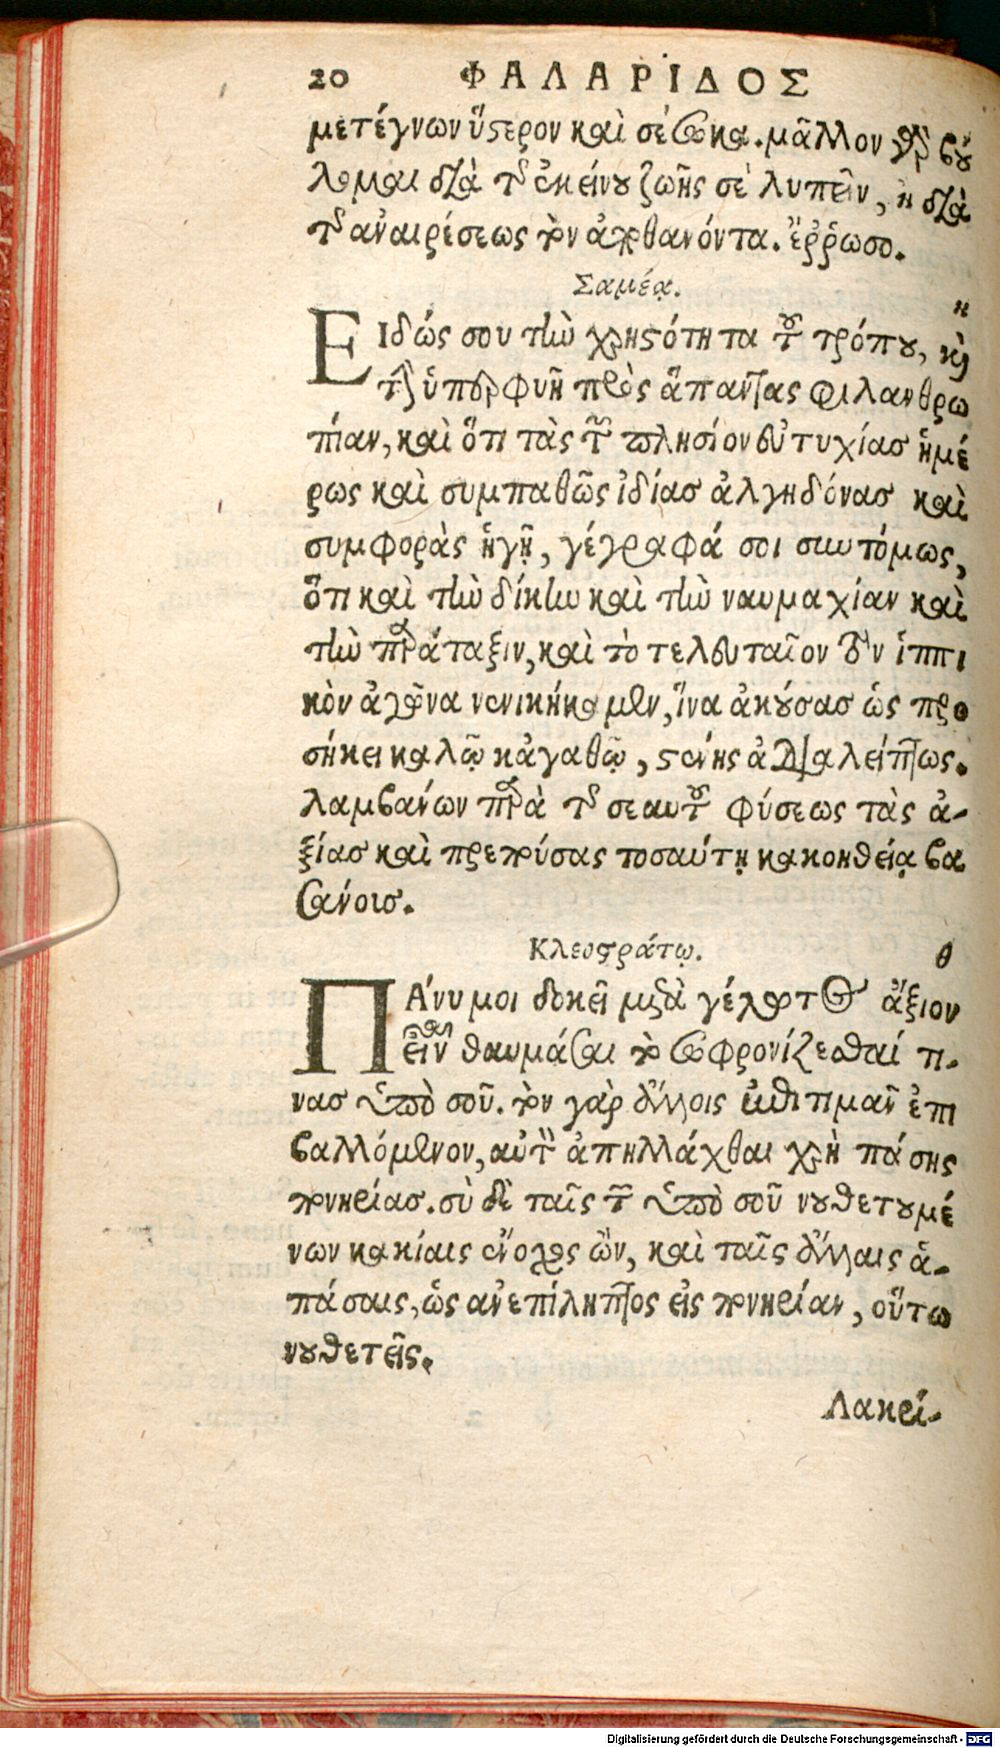 20 ΦΑΛΑΡΙΔΟΣ
μετέγνων ὕστερον καὶ σέσωκα. μᾶλλον γὰρ βού
λομαι διὰ τῆς ἐκείνου ζωῆς σὲ λυπεῖν, ἢ διὰ
τῆς ἀναιρέσεως τὸν ἀποθανόντα. ἔῤῥωσο.
Σαμέᾳ. η
ΕΙδώς σου τὴν χρηστότητα τοῦ τρόπου, καὶ
τὴν ὑπερφυῆ πρὸς ἅπαντας φιλανθρω
πίαν, καὶ ὅτι τὰς τῶν πλησίον εὐτυχίας ἡμέ
ρως καὶ συμπαθῶς ἰδίας ἀλγηδόνας καὶ
συμφορὰς ἡγῇ, γέγραφά σοι συντόμως,
ὅτι καὶ τὴν δίκην καὶ τὴν ναυμαχίαν καὶ
τὴν παράταξιν, καὶ τὸ τελευταῖον τὸν ἱππι
κὸν ἀγῶνα νενικήκαμεν, ἵνα ἀκούσας ὡς προ
σήκει καλῷ κἀγαθῷ, στένῃς ἀδιαλείπτως.
λαμβανων παρὰ τῆς σεαυτοῦ φύσεως τὰς ἀ-
ξίας καὶ πρεπούσας τοσαύτῃ κακοηθείᾳ βα
σάνοις.
Κλεοστράτῳ. θ
ΠΑνυ μοι δοκεῖ μετὰ γέλωτος ἄξιον
εἶναι θαυμάσαι τὸ σωφρονίζεσθαί τι-
νας ὑπὸ σοῦ. τὸν γὰρ ἄλλοις ἐπιτιμᾶν ἐπι
βαλλόμενον, αὐτὸν ἀπηλλάχθαι χρὴ πάσης
πονηρίας. σὺ δὲ ταῖς τῶν ὑπὸ σοῦ νουθετουμέ
νων κακίαις ἔνοχος ὢν, καὶ ταῖς ἄλλαις ἁ-
πάσαις, ὡς ἀνεπίληπτος εἰς πονηρίαν, οὕτω
νουθετεῖς.
Λακρί-
Digitalisierung gefördert durch die Deutsche Forschungsgemeinschaft - DFG